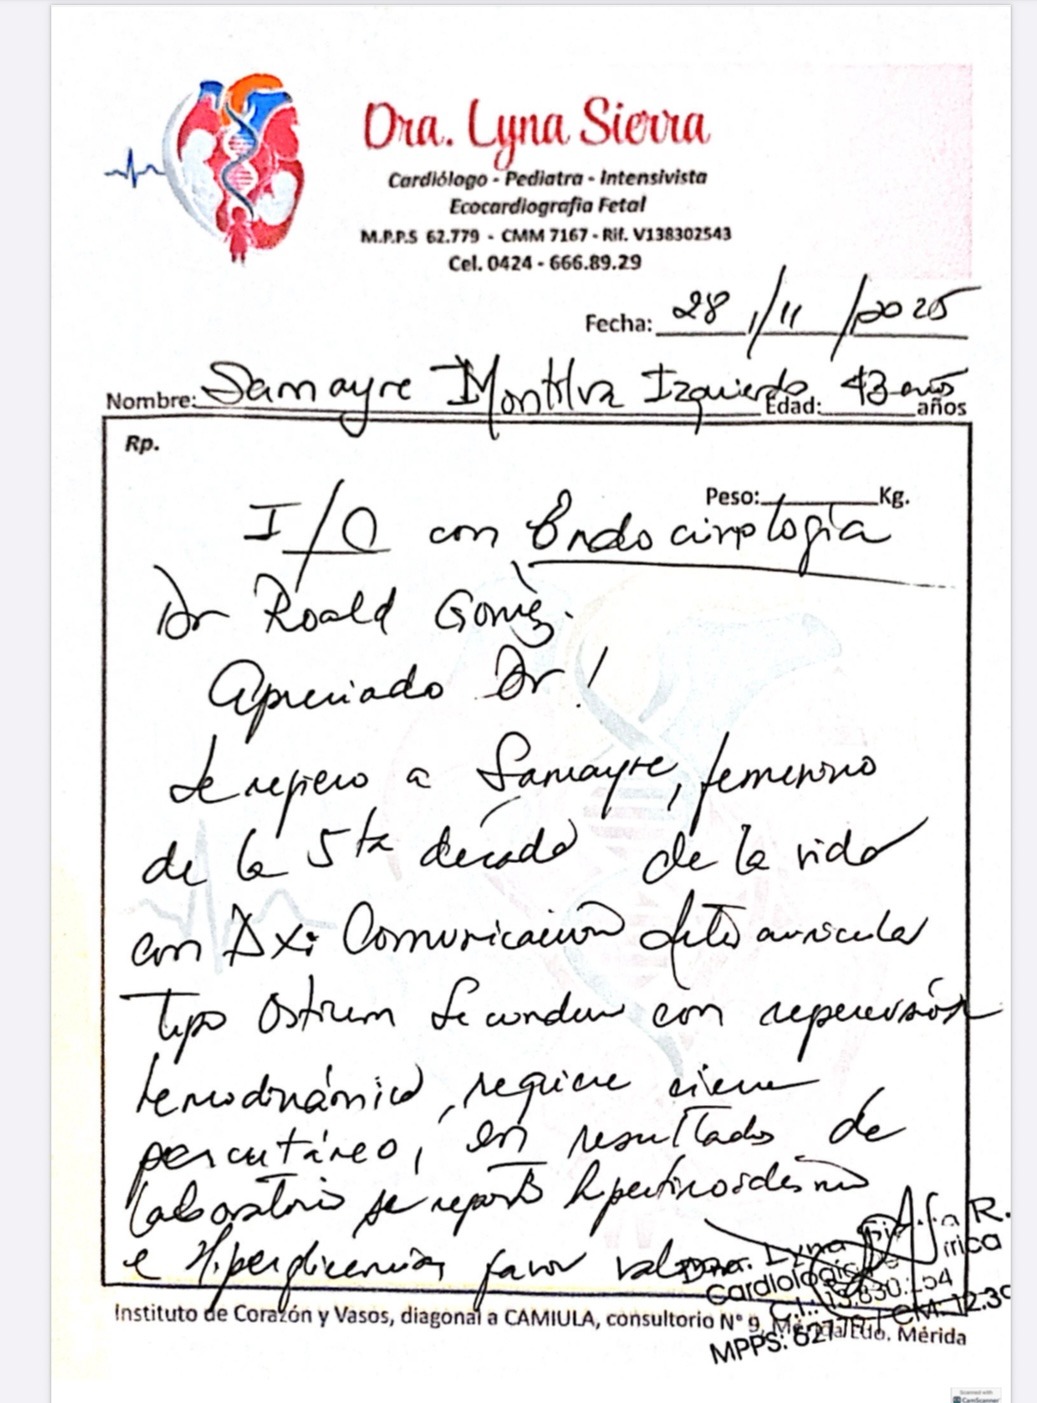 Dra. Lyna Sierra
Cardiólogo - Pediatra - Intensivista
Ecocardiografia Fetal
M.P.P.S 62.779 - CMM 7167 - Rif. V138302543
Cel. 0424 - 666.89.29
Fecha: 28/11/2025
Nombre: Samayre Montilva Izquierdo Edad: 43 años años
Rp.
Peso: Kg.
I/C con Endocirología
Dr Roald Goméz.
Apreciado Dr!
Se refiero a Samayre, femenino
de la 5ta década de la vida
con Dx: Comunicación auricular
Tipo Ostium Secundum con repercusión
hemodinámica, requiere cierre
percutáneo, en resultados de
laboratorio se reporta hipertiroidismo
e Hiperglicemia, favor valorar.
Dra. Lyna R.
Cardiología
MPPS: 6277 CM: 12.30
Instituto de Corazón y Vasos, diagonal a CAMIULA, consultorio N° 9, Mérida/Edo. Mérida
Scanned with
CamScanner